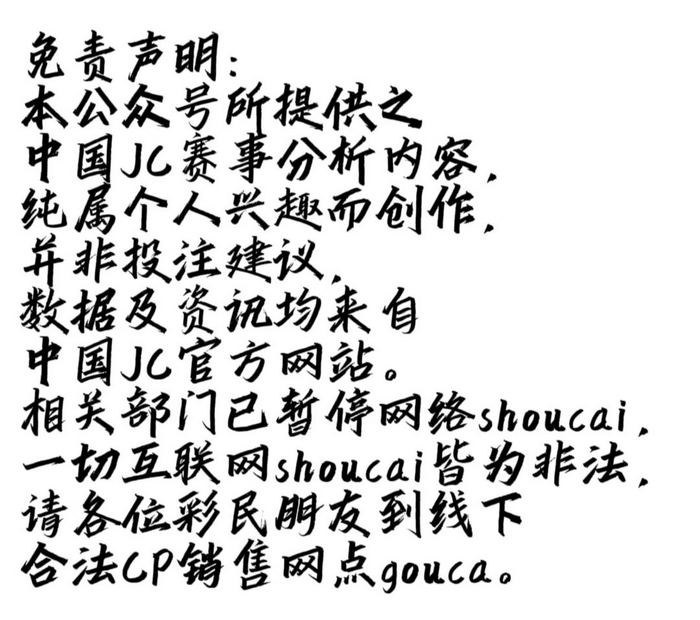 免责声明：
本公众号所提供之
中国JC赛事分析内容，
纯属个人兴趣而创作，
并非投注建议，
数据及资讯均来自
中国JC官方网站。
相关部门已暂停网络shoucai，
一切互联网shoucai皆为非法，
请各位彩民朋友到线下
合法CP销售网点gouca。